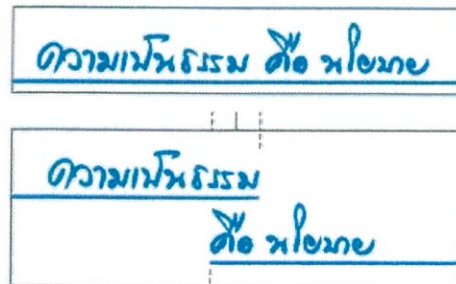 ความเป็นธรรม คือ นโยบาย
ความเป็นธรรม
คือ นโยบาย